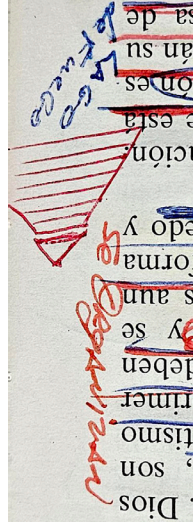 . Dios
, son
tismo
rimer
deben
y sé
s aun
forma
edo y
ación.
e esta
ones
án su
sa de
se organizan
Lago
de Fuego